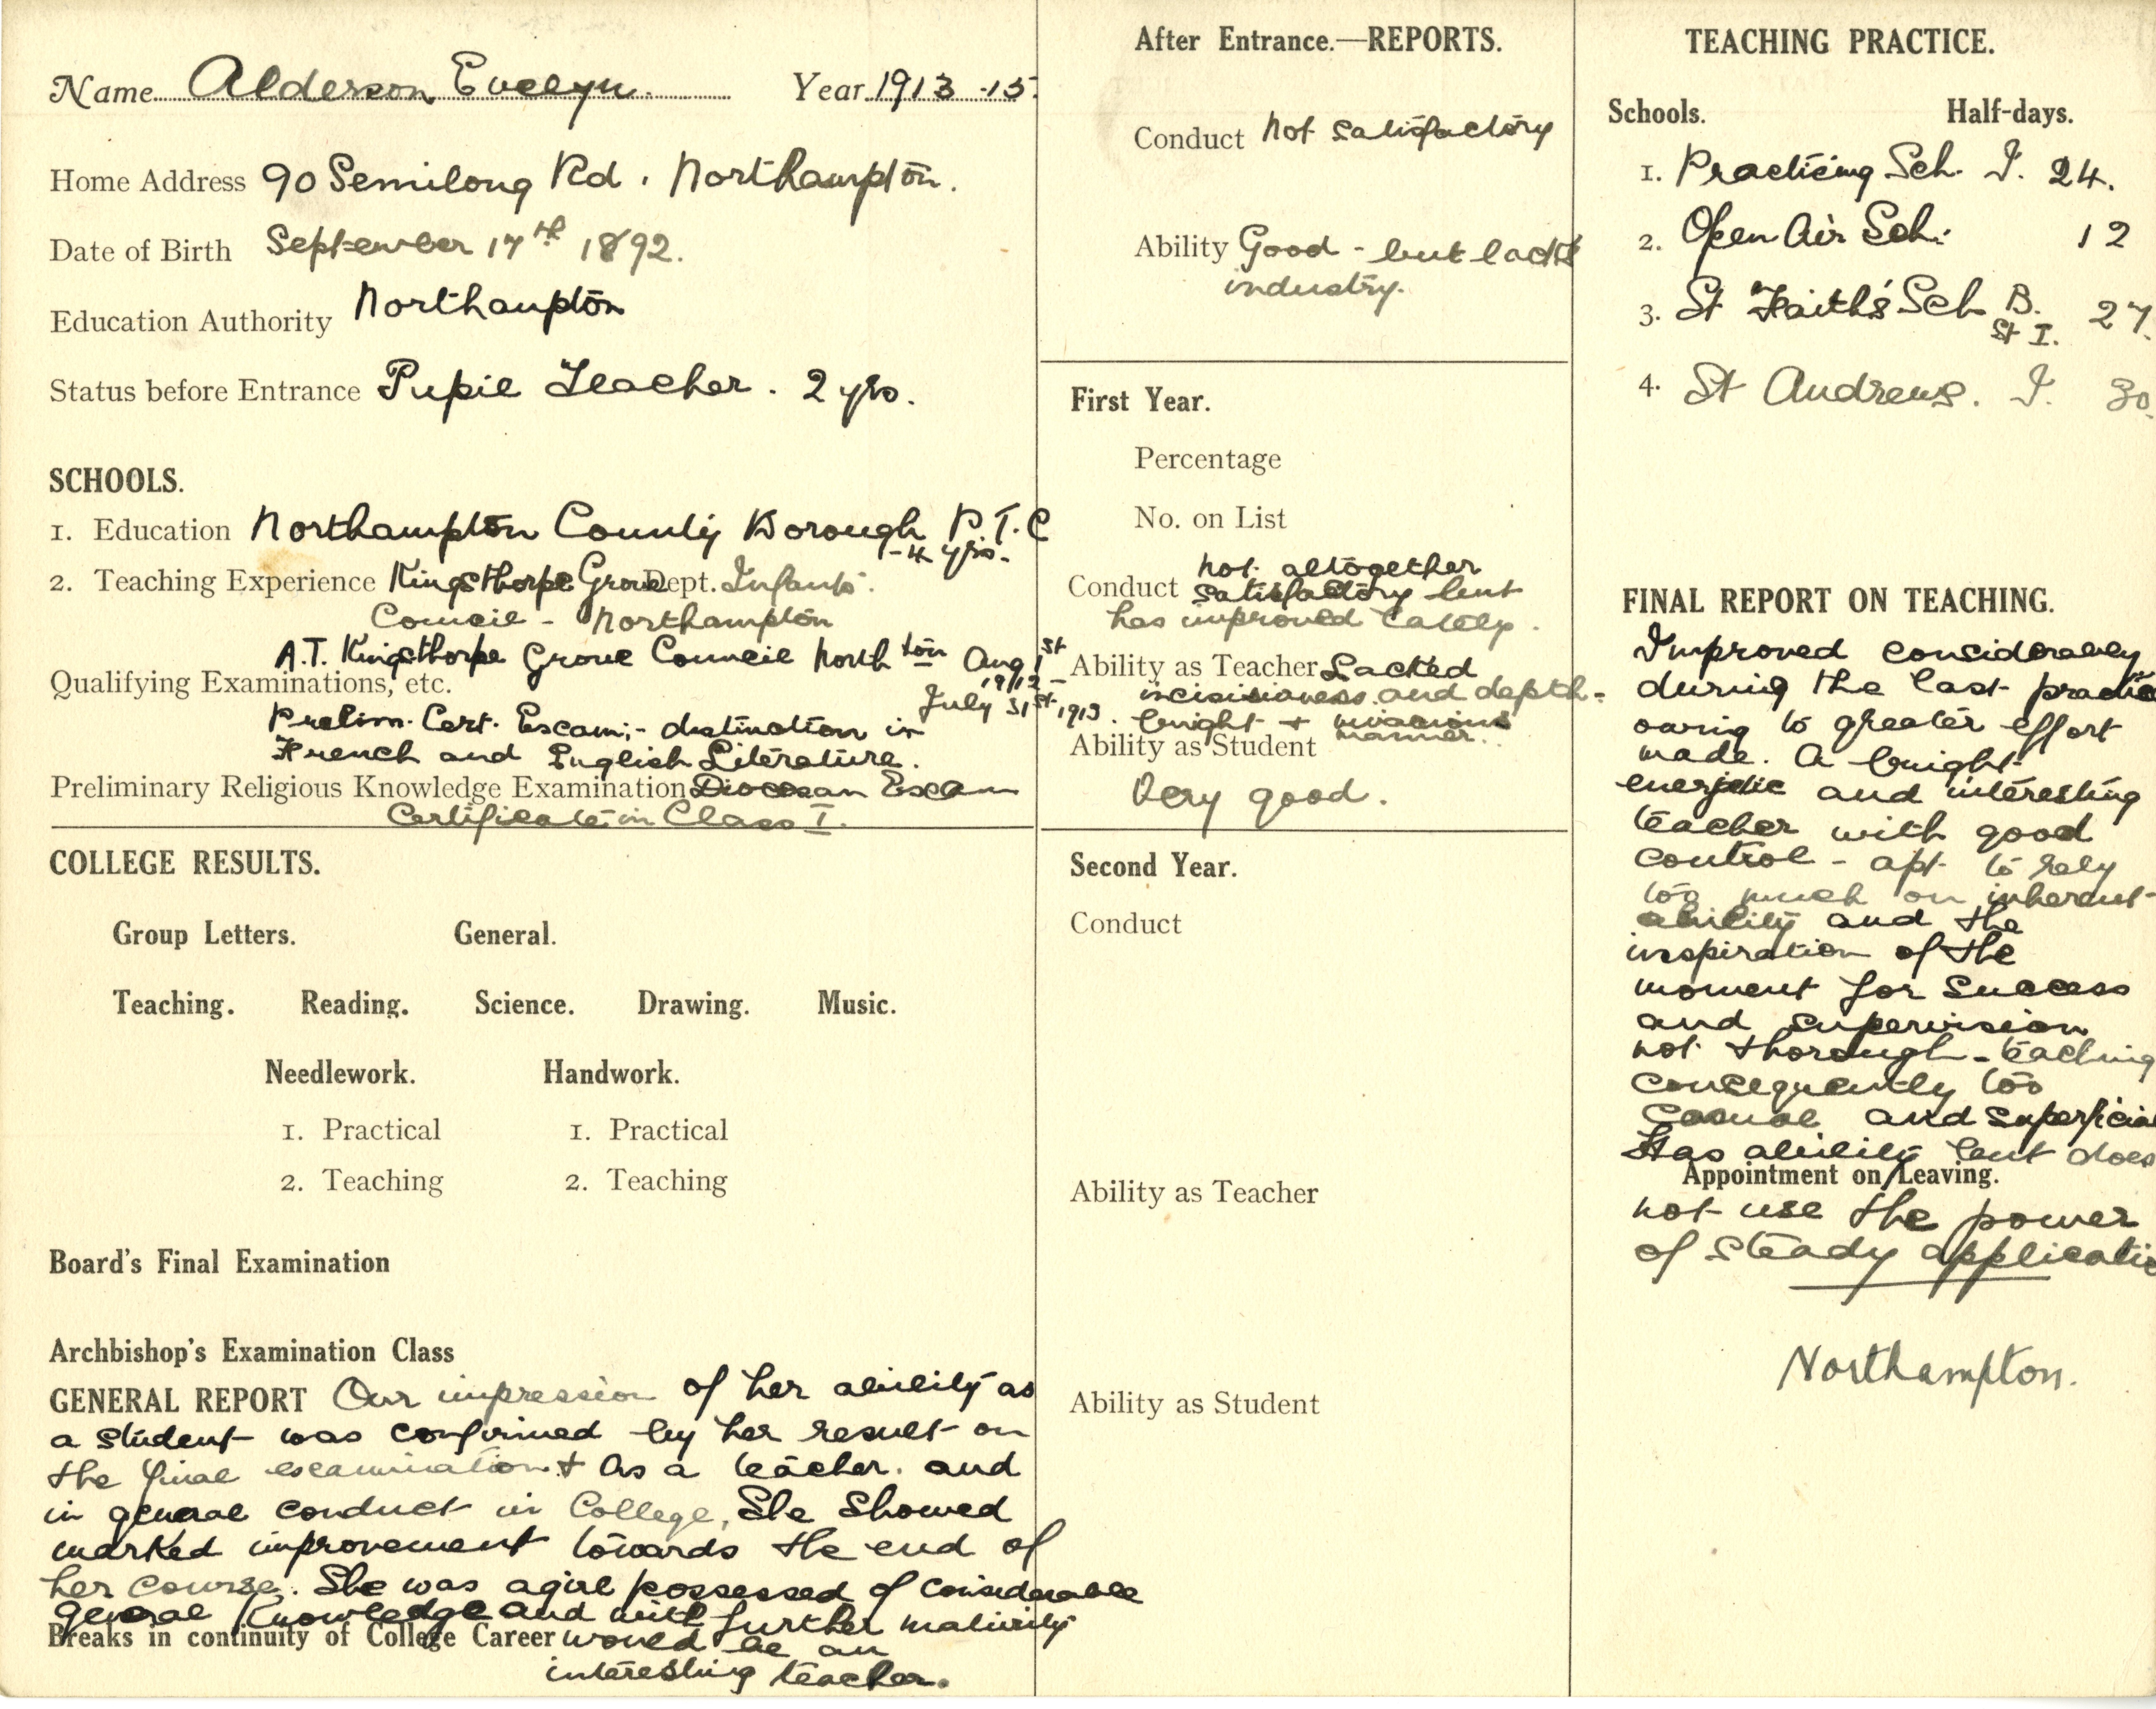 Name Alderson Evelyn. Year 1913-15.
Home Address 90 Semilong Rd. Northampton.
Date of Birth September 17th 1892.
Education Authority Northampton
Status before Entrance Pupil Teacher. 2 yrs.
SCHOOLS.
1. Education Northampton County Borough P.T.C
- 4 yrs.
2. Teaching Experience Kingsthorpe Grove Dept. Infants.
Council - Northampton
A.T. Kingsthorpe Grove Council North'ton Aug 1st
1912 -
Qualifying Examinations, etc.
July 31st 1913.
Prelim. Cert. Exam:- distinction in
French and English Literature.
Preliminary Religious Knowledge Examination Diocesan Exam
Certificate in Class I.
COLLEGE RESULTS.
Group Letters. General.
Teaching. Reading. Science. Drawing. Music.
Needlework. Handwork.
1. Practical 1. Practical
2. Teaching 2. Teaching
Board's Final Examination
Archbishop's Examination Class
GENERAL REPORT Our impression of her ability as
a student was confirmed by her result on
the final examination & As a teacher. and
in general conduct in College, She showed
marked improvement towards the end of
her course. She was a girl possessed of considerable
general knowledge and with further maturity
Breaks in continuity of College Career would be an
interesting teacher.
After Entrance.—REPORTS.
Conduct not satisfactory
Ability Good - but lacks
industry.
First Year.
Percentage
No. on List
not altogether
Conduct satisfactory but
has improved lately.
Ability as Teacher Lacked
incisiveness and depth -
bright & vivacious
Ability as Student manner.
Very good.
Second Year.
Conduct
Ability as Teacher
Ability as Student
TEACHING PRACTICE.
Schools. Half-days.
1. Practicing Sch. I. 24.
2. Open Air Sch: 12
3. St Faith's Sch B. 27.
St I.
4. St Andrews. I. 30.
FINAL REPORT ON TEACHING.
Improved considerably
during the last practice
owing to greater effort
made. A bright
energetic and interesting
teacher with good
control - apt to rely
too much on inherent
ability and the
inspiration of the
moment for success
and supervision
not thorough - teaching
consequently too
casual and superficial
Has ability but does
Appointment on Leaving.
not use the power
of steady application
Northampton.